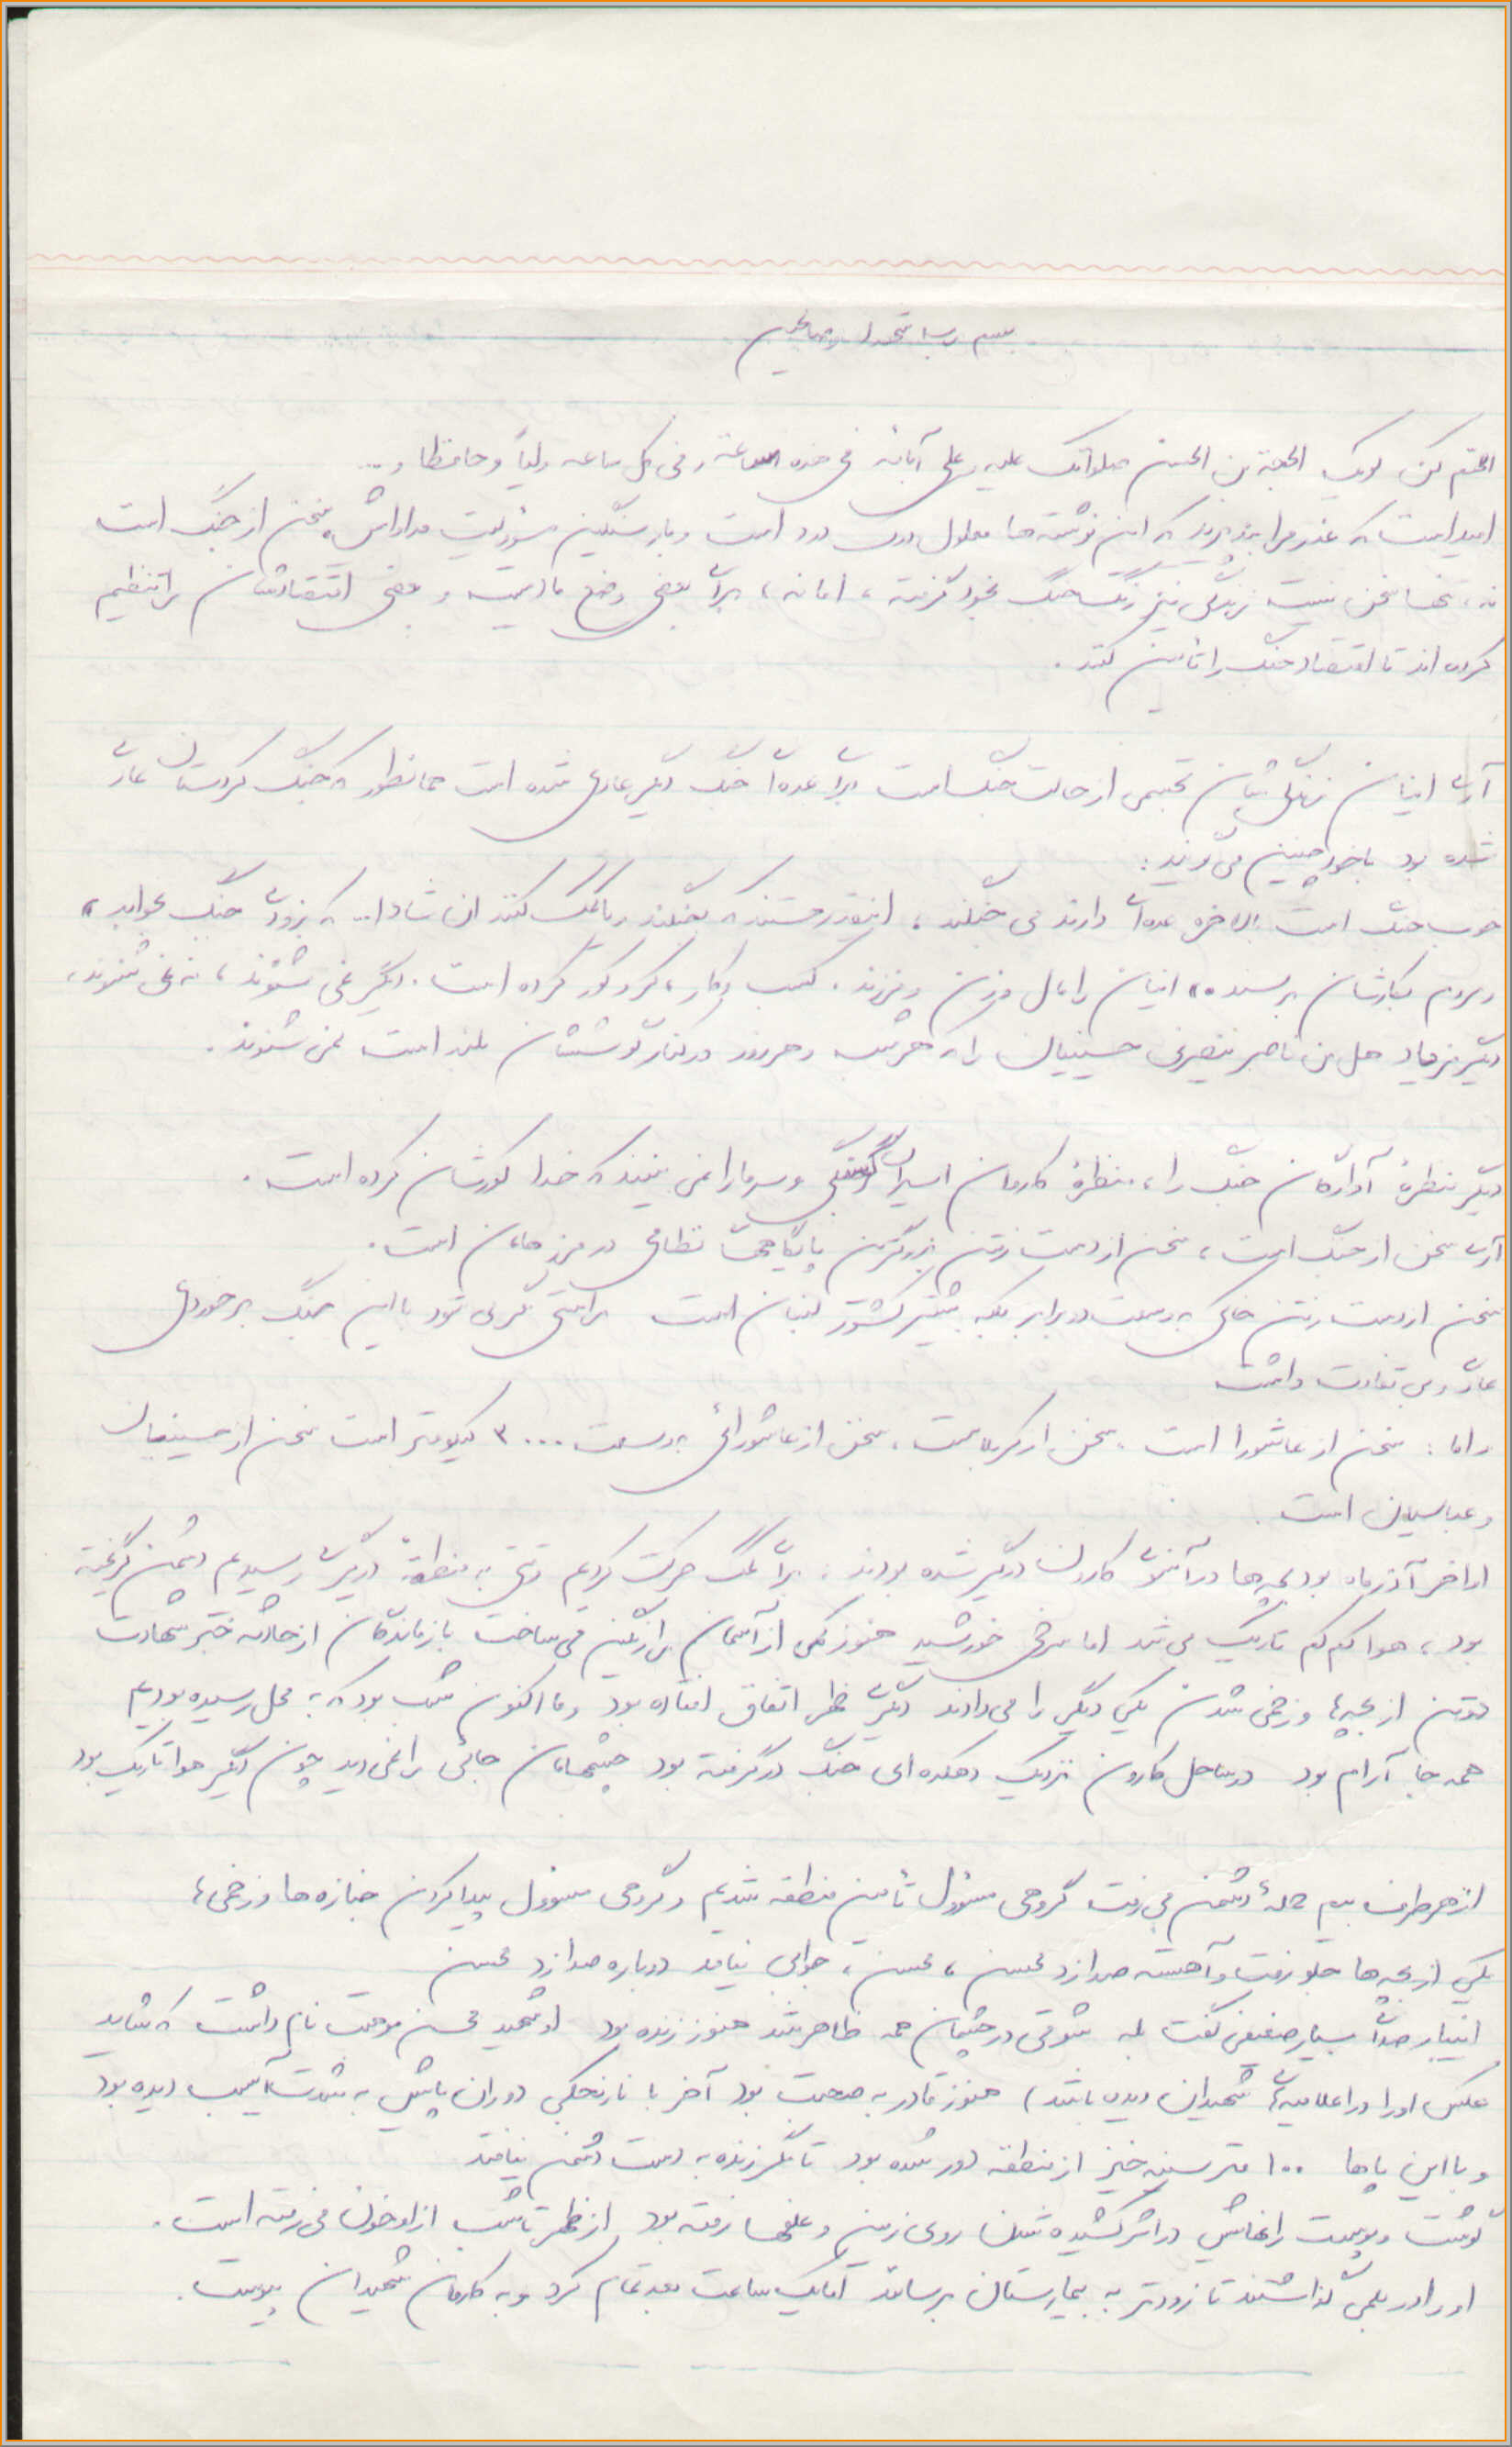 بسم رب الشهدا والصالحین
اللهم کن لولیک الحجة بن الحسن صلواتک علیه وعلی آبائه فی هذه الساعة وفی کل ساعه ولیاً وحافظا و...
امید است که عذر مرا بپذیرید که این نوشته ها معلول درک درد است و بار سنگین مسئولیت سخن از جنگ است
نه، تنها سخن نیست زندگی نیز رنگ جنگ بخود گرفته، اما نه، برای بعضی وضع مادیت و بعضی اقتصادشان را تنظیم
کرده اند تا اقتصاد جنگ را تأمین کنند.
آری اینان زندگی شان تجسمی از حالت جنگ است برای عده ای جنگ دیگر عادی شده است همانطور که جنگ کردستان عادی
شده بود با خود چنین می گویند:
خوب جنگ است بالاخره عده ای دارند می جنگند، اینقدر هستند که بجنگند و ما کمک کنند ان شاءا... که بزودی جنگ بخوابد"
و مردم بکارشان برسند" اینان را مال و زن و فرزند، کسب و کار، کر و کور کرده است. دیگر نمی شنوند، نه نمی شنوند،
دیگر فریاد هل من ناصر ینصرنی حسینیان را که هر شب و هر روز در کنار گوششان بلند است نمی شنوند.
دیگر منظرهٔ آوارگان جنگ را، منظرهٔ کاروان اسیران گرسنگی و سرما را نمی بینند که خدا کورشان کرده است.
آری سخن از جنگ است، سخن از دست رفتن بزرگترین پایگاههای نظامی در مرزهامان است.
سخن از دست رفتن خاکی به وسعت دو برابر بلکه بیشتر کشور لبنان است براستی مگر می شود با این جنگ برخوردی
عادی و بی تفاوت داشت
و اما: سخن از عاشورا است، سخن از کربلاست، سخن از عاشورائی به وسعت ۳۰۰۰ کیلومتر است سخن از حسینیان
و عباسیان است.
اواخر آذرماه بود بچه ها در آنسوی کارون درگیر شده بودند. برای کمک حرکت کردیم وقتی به منطقهٔ درگیری رسیدیم دشمن گریخته
بود، هوا کم کم تاریک می شد اما سرخی خورشید هنوز کمی از آسمان را رنگین می ساخت بازماندگان از حادثه خبر شهادت
دو تن از بچه ها و زخمی شدن یکی دیگر را می دادند درگیری ظهر اتفاق افتاده بود و ما اکنون شب بود که به محل رسیده بودیم
همه جا آرام بود در ساحل کارون نزدیک دهکده ای جنگ درگرفته بود چشمهامان جائی را نمی دید چون دیگر هوا تاریک بود
از هر طرف بیم حملهٔ دشمن می رفت گروهی مسؤول تأمین منطقه شدیم و گروهی مسؤول پیدا کردن جنازه ها و زخمی ها
یکی از بچه ها جلو رفت و آهسته صدا زد محسن، محسن، جوابی نیامد دوباره صدا زد محسن
اینبار صدای بسیار ضعیفی گفت بله شوقی در چشمان همه ظاهر شد هنوز زنده بود (و شهید محسن نام داشت که شاید
عکس او را در اعلامیه های شهیدان دیده باشید) هنوز قادر به صحبت بود آخر با نارنجکی دو ران پایش به شدت آسیب دیده بود
و با این پاها ۱۰۰ متر سینه خیز از منطقه دور شده بود تا مگر زنده به دست دشمن نیافتد
گوشت و پوست رانهایش در اثر کشیده شدن روی زمین و علفها رفته بود از ظهر تا شب از او خون می رفته است.
او را در بلمی گذاشتند تا زودتر به بیمارستان برسانند اما یک ساعت بعد تمام کرد و به کاروان شهیدان پیوست.